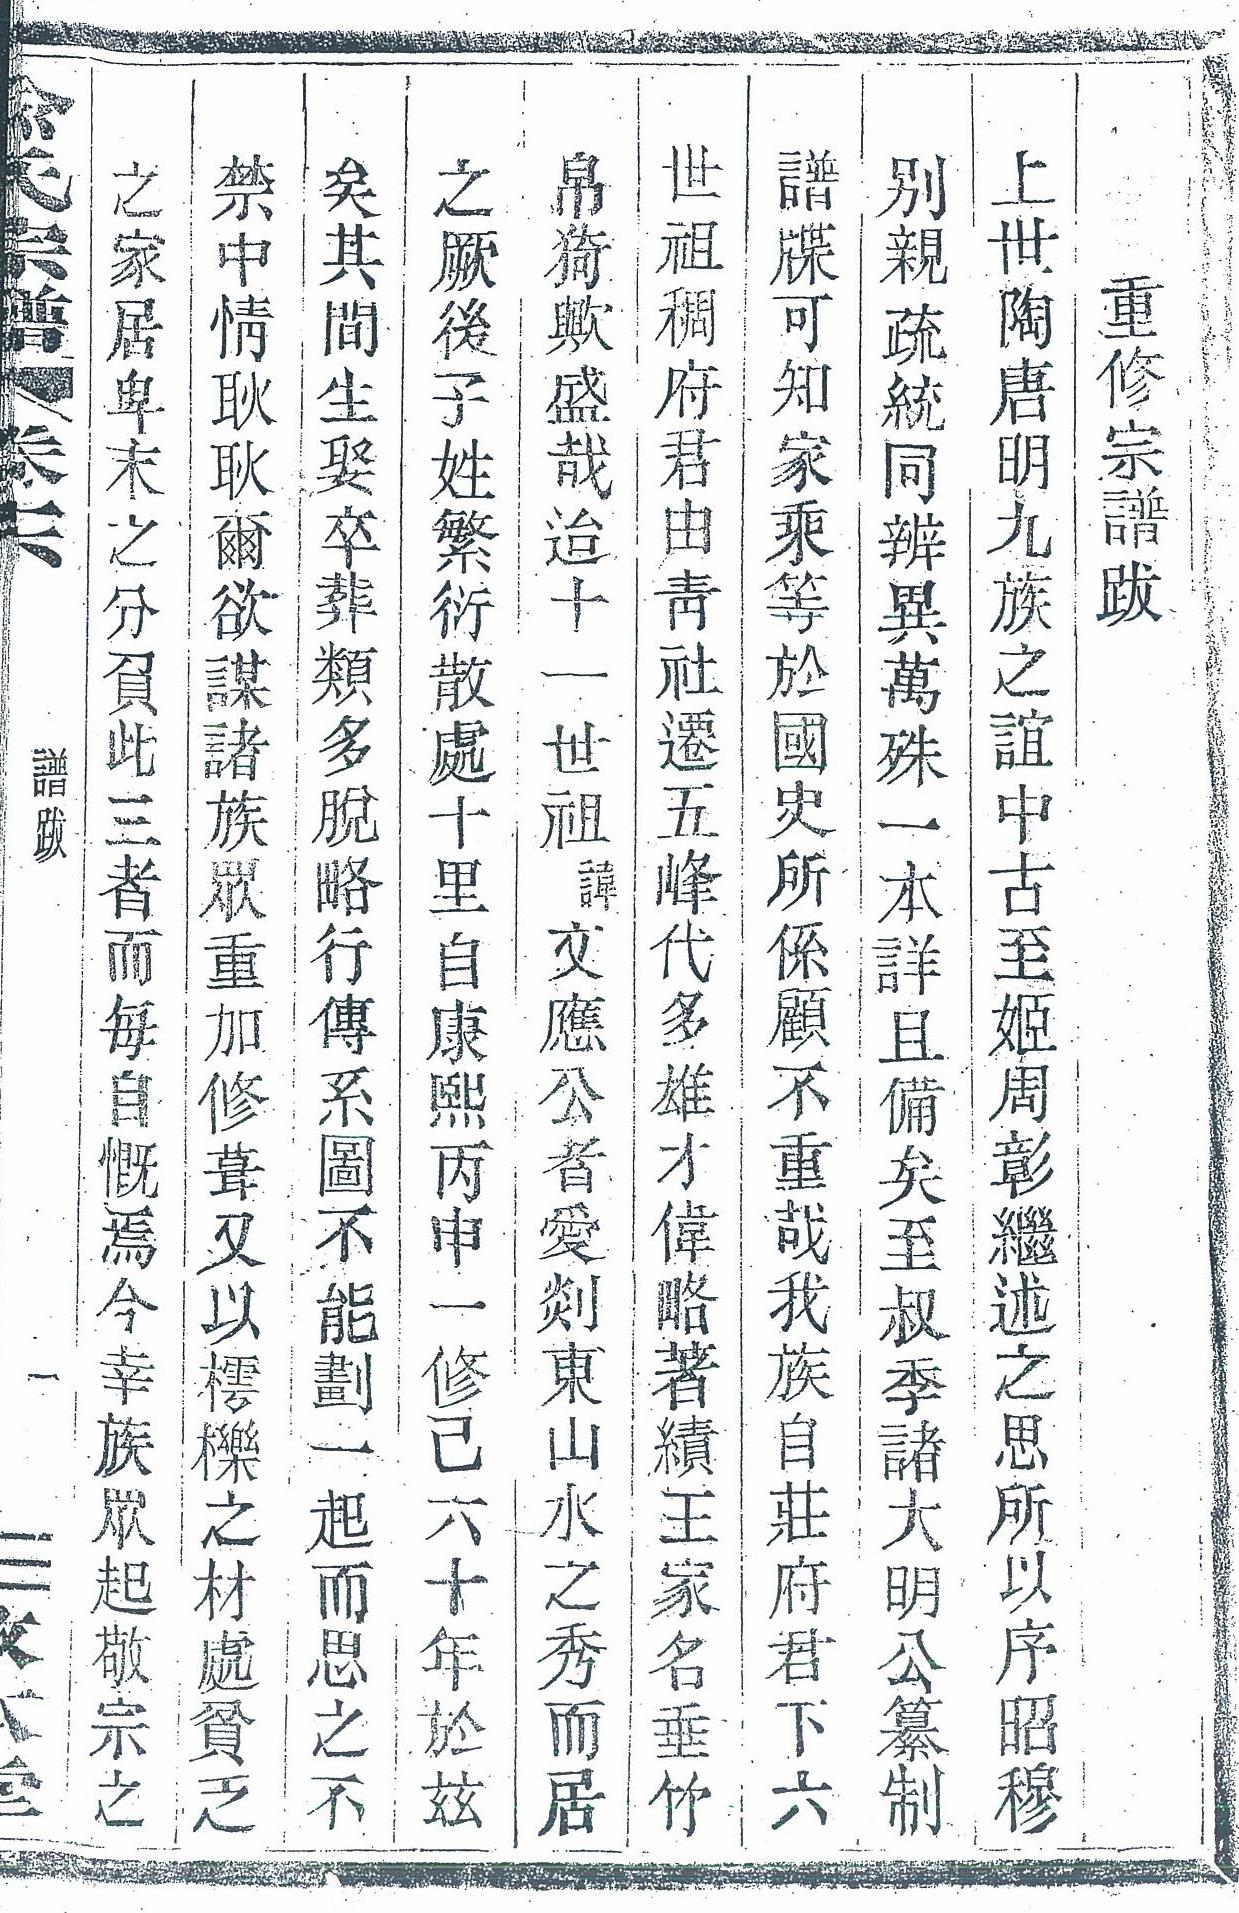 重修宗譜跋
上世陶唐明九族之誼中古至姬周彰繼述之思所以序昭穆
別親疏統同辨異萬殊一本詳且備矣至叔季諸大明公纂制
譜牒可知家乘等於國史所係顧不重哉我族自莊府君下六
世祖稠府君由青社遷五峰代多雄才偉略著績王家名垂竹
帛猗歟盛哉迨十一世祖諱文應公者愛剡東山水之秀而居
之厥後子姓繁衍散處十里自康熙丙申一修已六十年於茲
矣其間生娶卒葬類多脫略行傳系圖不能劃一起而思之不
禁中情耿耿爾欲謀諸族眾重加修葺又以樗櫟之材處貧乏
之家居卑末之分負此三者而每自慨焉今幸族眾起敬宗之
氏宗譜 卷六
譜跋
一